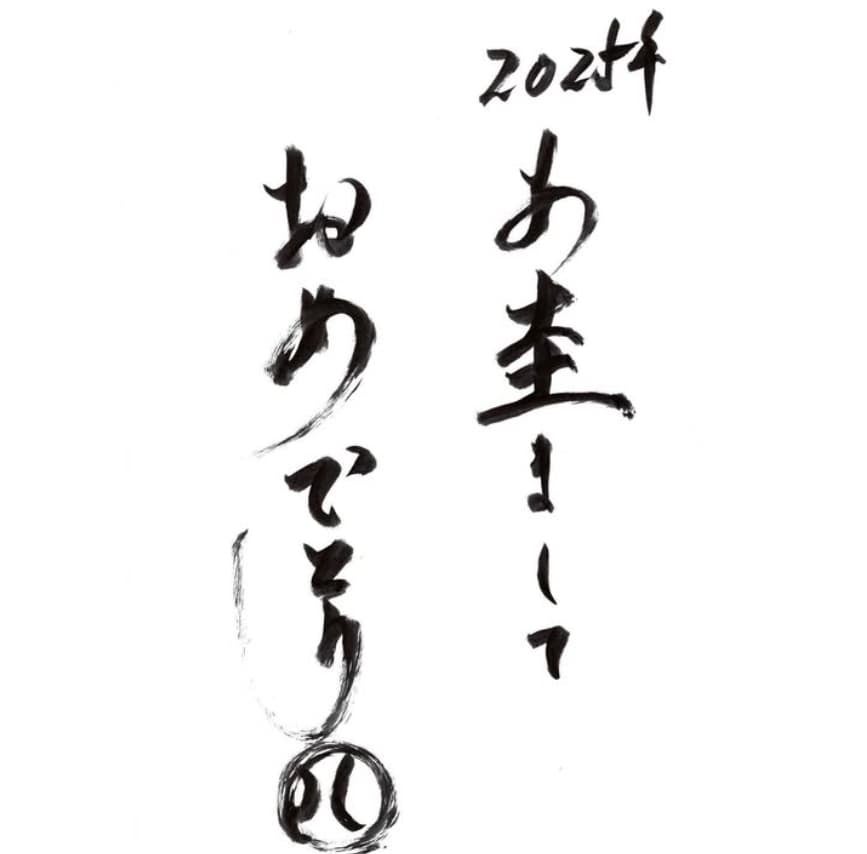 2025年
あ奎まして
おめでとう